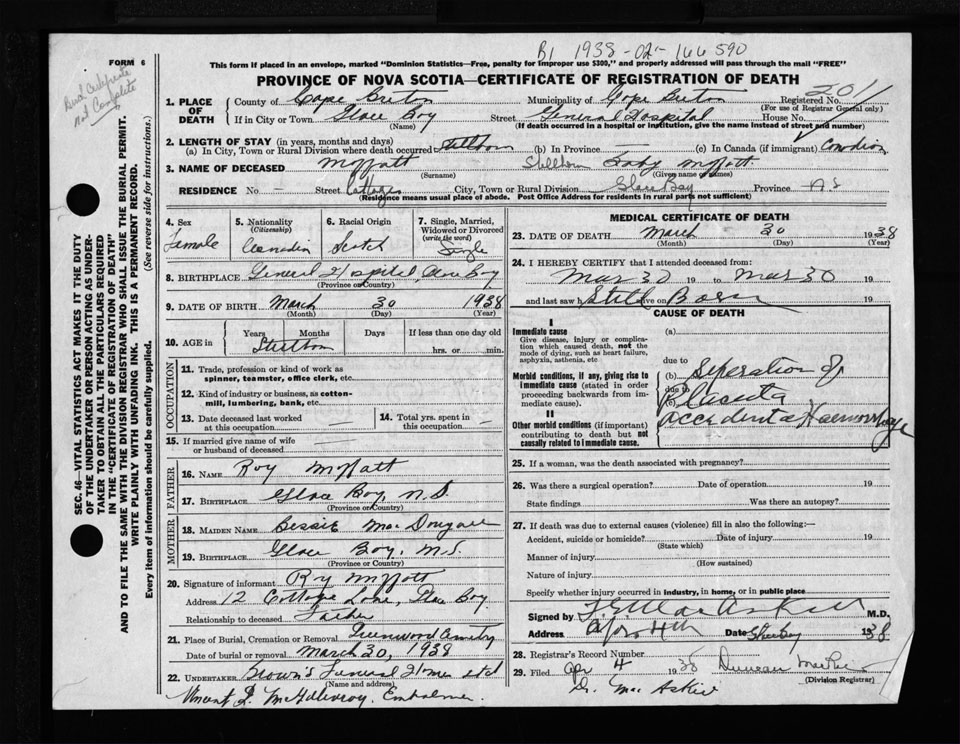 B1 1938-02-166590
FORM 6
This form if placed in an envelope, marked "Dominion Statistics—Free, penalty for improper use $300," and properly addressed will pass through the mail "FREE"
PROVINCE OF NOVA SCOTIA—CERTIFICATE OF REGISTRATION OF DEATH
Burial Certificate
Not Complete
SEC. 46—VITAL STATISTICS ACT MAKES IT THE DUTY
OF THE UNDERTAKER OR PERSON ACTING AS UNDER-
TAKER TO OBTAIN ALL THE PARTICULARS REQUIRED
IN THE "CERTIFICATE OF REGISTRATION OF DEATH"
AND TO FILE THE SAME WITH THE DIVISION REGISTRAR WHO SHALL ISSUE THE BURIAL PERMIT.
WRITE PLAINLY WITH UNFADING INK. THIS IS A PERMANENT RECORD.
Every item of information should be carefully supplied. (See reverse side for instructions.)
1. PLACE OF DEATH County of Cape Breton Municipality of Cape Breton Registered No. 201
(For use of Registrar General only)
If in City or Town Glace Bay Street General Hospital House No.
(Name) (If death occurred in a hospital or institution, give the name instead of street and number)
2. LENGTH OF STAY (in years, months and days)
(a) In City, Town or Rural Division where death occurred Stillborn (b) In Province — (c) In Canada (if immigrant) Canadian
3. NAME OF DECEASED Moffatt Stillborn Baby Moffatt
(Surname) (Given names)
RESIDENCE No. — Street Cottages City, Town or Rural Division Glace Bay Province N S
(Residence means usual place of abode. Post Office Address for residents in rural parts not sufficient)
4. Sex Female
5. Nationality (Citizenship) Canadian
6. Racial Origin Scotch
7. Single, Married, Widowed or Divorced (write the word) Single
8. BIRTHPLACE General Hospital, Glace Bay
(Province or Country)
9. DATE OF BIRTH March 30 1938
(Month) (Day) (Year)
10. AGE in Years Months Days If less than one day old
Stillborn hrs. or min.
OCCUPATION
11. Trade, profession or kind of work as spinner, teamster, office clerk, etc.
12. Kind of industry or business, as cotton-mill, lumbering, bank, etc.
13. Date deceased last worked at this occupation —
14. Total yrs. spent in this occupation —
15. If married give name of wife or husband of deceased
FATHER
16. NAME Roy Moffatt
17. BIRTHPLACE Glace Bay, N.S.
(Province or Country)
MOTHER
18. MAIDEN NAME Bessie MacDougall
19. BIRTHPLACE Glace Bay, N.S.
(Province or Country)
20. Signature of informant Roy Moffatt
Address 12 Cottage Lane, Glace Bay
Relationship to deceased Father
21. Place of Burial, Cremation or Removal Greenwood Cemetery
Date of burial or removal March 30, 1938
22. UNDERTAKER Brown's Funeral Home Ltd
(Name and address)
Vincent Embalmer.
MEDICAL CERTIFICATE OF DEATH
23. DATE OF DEATH March 30 1938
(Month) (Day) (Year)
24. I HEREBY CERTIFY that I attended deceased from:
Mar 30 19 to Mar 30 19
and last saw h Still alive on Born 19
CAUSE OF DEATH
I
Immediate cause (a)
Give disease, injury or complication which caused death, not the mode of dying, such as heart failure, asphyxia, asthenia, etc.
due to
Morbid conditions, if any, giving rise to immediate cause (stated in order proceeding backwards from immediate cause). (b) Seperation of
due to
(c) Placenta
II
Other morbid conditions (if important) contributing to death but not causally related to immediate cause. accidental Haemorrhage
25. If a woman, was the death associated with pregnancy?
26. Was there a surgical operation? Date of operation 19
State findings Was there an autopsy?
27. If death was due to external causes (violence) fill in also the following:—
Accident, suicide or homicide? Date of injury 19
(State which)
Manner of injury
(How sustained)
Nature of injury
Specify whether injury occurred in industry, in home, or in public place
Signed by MacAskill M.D.
Address Date 1938
28. Registrar's Record Number
29. Filed Apr 4 1938 Duncan
(Division Registrar)